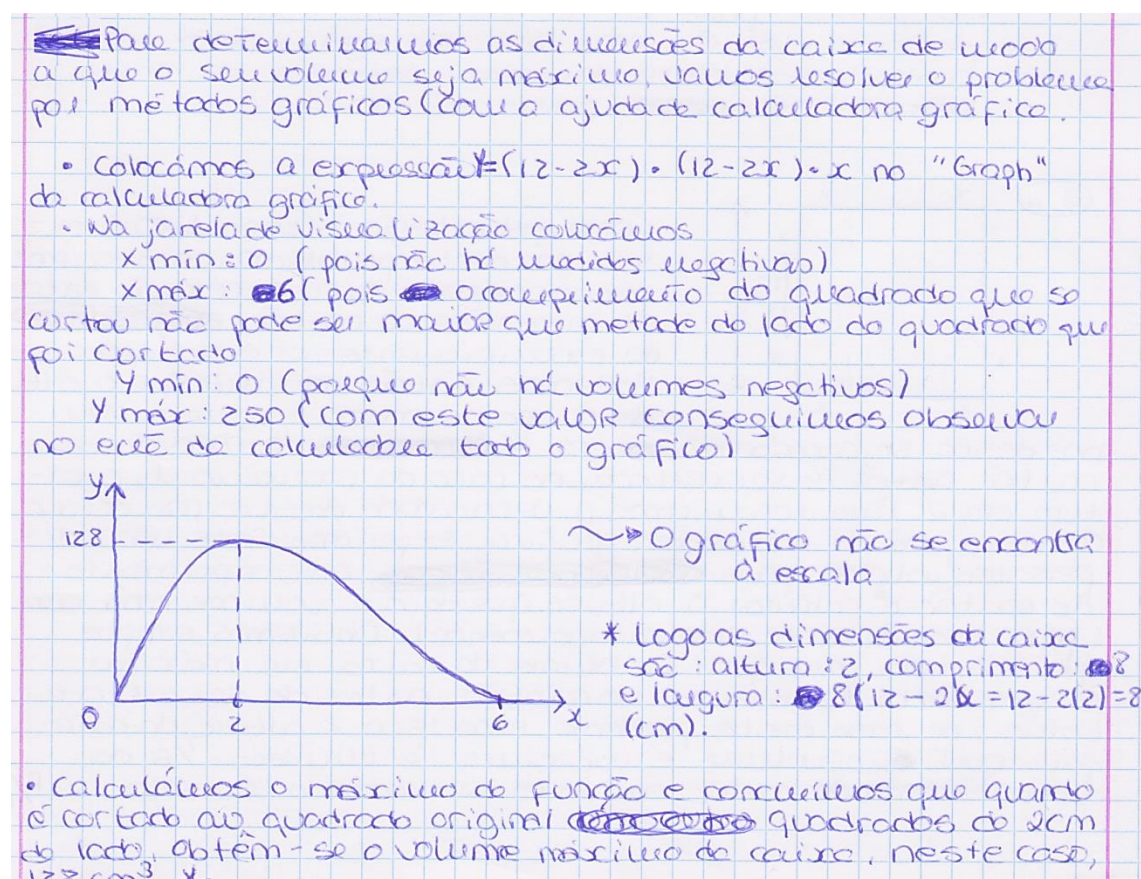 Para determinarmos as dimensões da caixa de modo
a que o seu volume seja máximo, vamos resolver o problema
por métodos gráficos (com a ajuda de calculadora gráfica.
• Colocámos a expressão Y=(12-2x).(12-2x).x no "Graph"
da calculadora gráfica.
• Na janela de visualização colocámos
X mín: 0 (pois não há medidas negativas)
X máx: 6 (pois o comprimento do quadrado que se
cortou não pode ser maior que metade do lado do quadrado que
foi cortado
Y mín: 0 (porque não há volumes negativos)
Y máx: 250 (com este valor conseguimos observar
no ecrã da calculadora todo o gráfico)
y
128
O gráfico não se encontra
à escala
* Logo as dimensões da caixa
são: altura: 2, comprimento: 8
e largura: 8 (12-2x=12-2(2)=8
(cm).
0 2 6 x
• Calculámos o máximo da função e concluimos que quando
é cortado ao quadrado original quadrados de 2cm
de lado, obtém-se o volume máximo da caixa, neste caso,
cm³